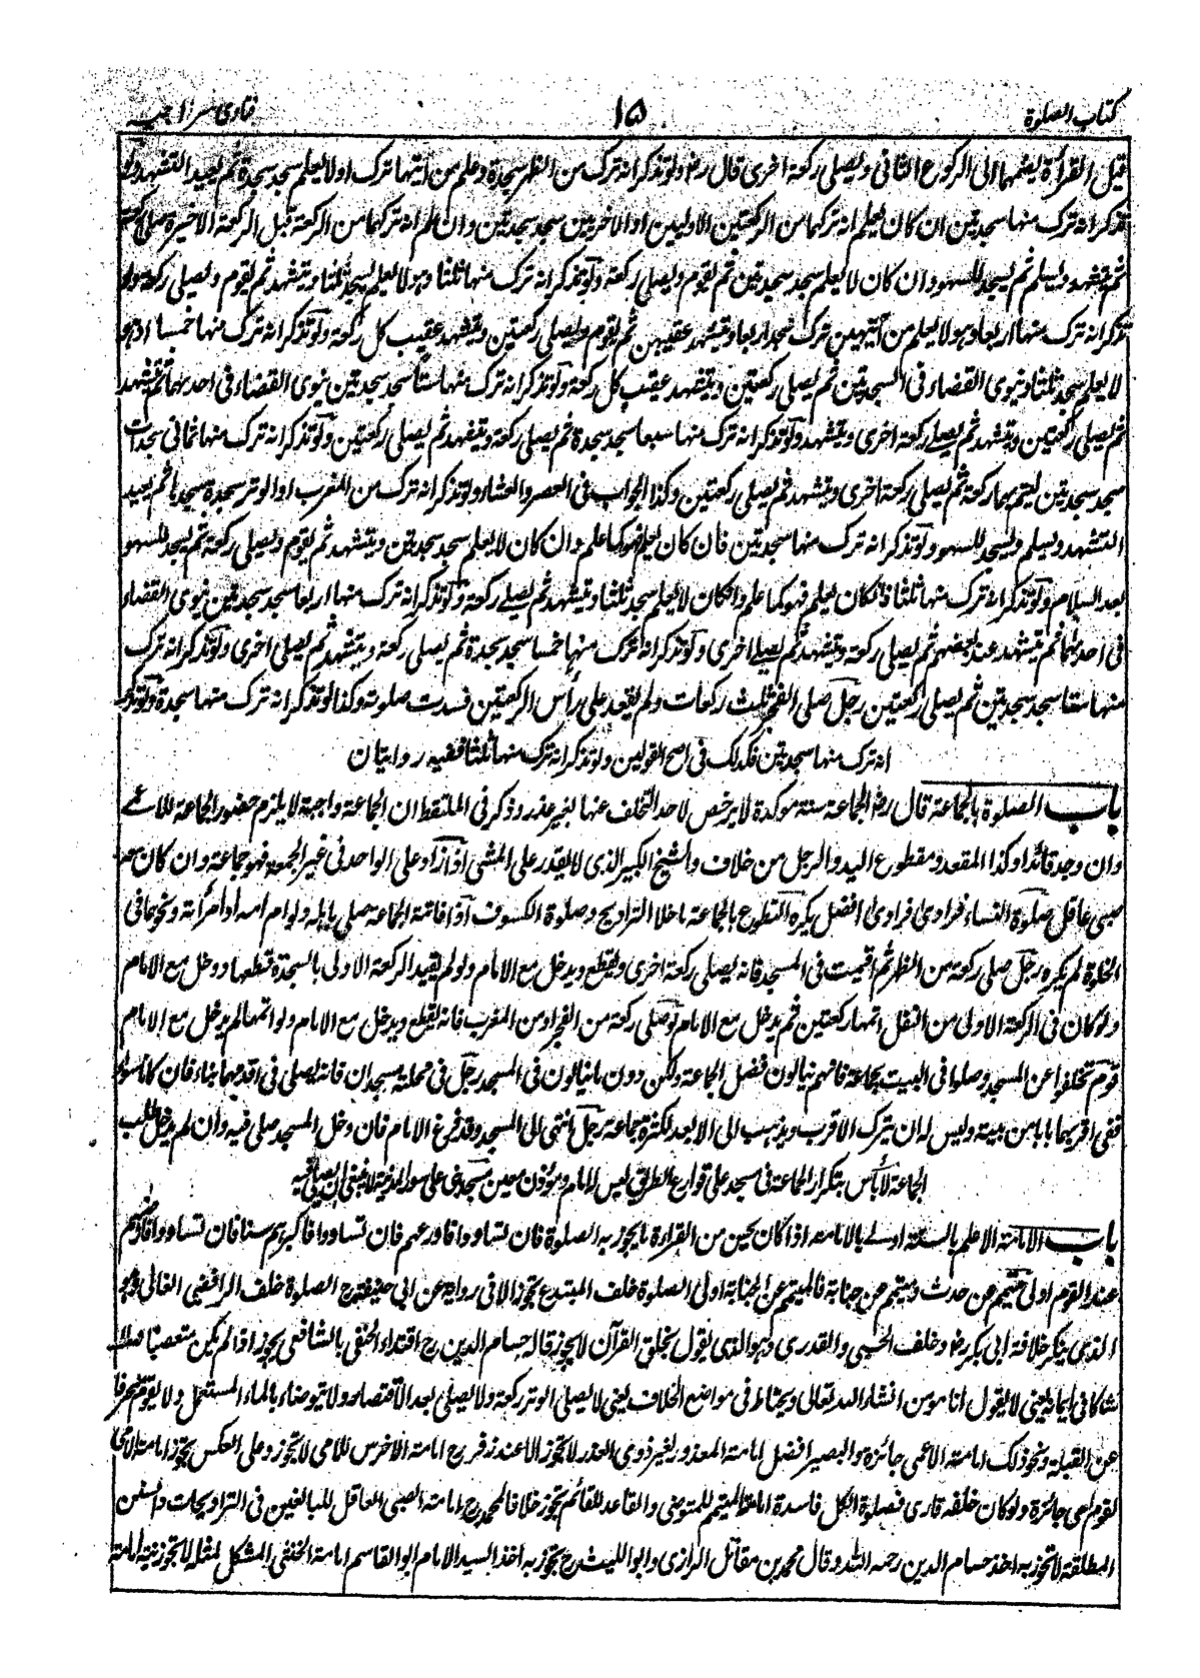 كتاب الصلوة ۱۵ فتاوى سراجيه
قبل القراءة يضمها الى الركوع الثانى ويصلى ركعة اخرى قال رض ولو تذكر انه ترك من الظهر سجدة وعلم من ايتها ترك اولا يعلم سجد سجدة ثم يعيد التشهد ولو
تذكر انه ترك منها سجدتين ان كان يعلم انه تركها من الركعتين الاوليين او الاخريين سجد سجدتين وان علم انه تركهما من الركعة قبل الركعة الاخيرة صلى ركعة
ثم يتشهد ويسلم ثم يسجد للسهو وان كان لا يعلم سجد سجدتين ثم يقوم ويصلى ركعة ولو تذكر انه ترك منها ثلثا وهو لا يعلم يسجد ثلثا ويتشهد ثم يقوم ويصلى ركعة ولو
تذكر انه ترك منها اربعا وهو لا يعلم من ايتهن ترك سجد اربعا ويتشهد عقيبهن ثم يقوم ويصلى ركعتين ويتشهد عقيب كل ركعة ولو تذكر انه ترك منها خمسا اذ هو
لا يعلم سجد ثلثا وينوى القضاء فى السجدتين ثم يصلى ركعتين ويتشهد عقب كل ركعة ولو تذكر انه ترك منها ستا سجد سجدتين ينوى القضاء فى احدىهما ثم يتشهد
ثم يصلى ركعتين ويتشهد ثم يصلے ركعة اخرى ويتشهد ولو تذكر انه ترك منها سبعا سجد سجدة ثم يصلى ركعة ويتشهد ثم يصلى ركعتين ولو تذكر انه ترك منها ثمانى سجدات
سجد سجدتين ليتم بهما ركعة ثم يصلى ركعة اخرى ويتشهد ثم يصلى ركعتين وكذا الجواب فى العصر والعشاء ولو تذكر انه ترك من المغرب او الوتر سجدة سجدها ثم يعيد
التشهد ويسلم ويسجد للسهو ولو تذكر انه ترك منها سجدتين فان كان يعلم فهو كما علم وان كان لا يعلم سجد سجدتين ويتشهد ثم يقوم ويصلى ركعة ثم يسجد للسهو
بعد السلام ولو تذكر انه ترك منها ثلثا فانكان يعلم فهو كما علم وانكان لا يعلم سجد ثلثا ويتشهد ثم يصلے ركعة ولو تذكر انه ترك منها اربعا سجد سجدتين ينوى القضاء
فى احدىهما ثم يتشهد عند بعضهم ثم يصلى ركعة ويتشهد ثم يصلے اخرى ولو تذكر انه ترك منها خمسا سجد سجدة ثم يصلى ركعة ويتشهد ثم يصلى اخرى ولو تذكر انه ترك
منها ستا سجد سجدتين ثم يصلى ركعتين رجل صلى الفجر ثلث ركعات ولم يقعد على رأس الركعتين فسدت صلوته وكذا لو تذكر انه ترك منها سجدة ولو تذكر
انه ترك منها سجدتين فكذلك فى اصح القولين ولو تذكر انه ترك منها ثلثا ففيه روايتان
باب الصلوة بالجماعة قال رض الجماعة سنة موكدة لا يرخص لاحد التخلف عنها لغير عذر وذكر فى الملتقط ان الجماعة واجبة لا يلزم حضور الجماعة للاعمے
وان وجد قائدا وكذا المقعد ومقطوع اليد والرجل من خلاف والشيخ الكبير الذى لا يقدر على المشى اذا زاد على الواحد فى غير الجمعة فهو جماعة وان كان معه
صبى عاقل صلوة النساء فرادى فرادى افضل يكره التطوع بالجماعة ما خلا التراويح وصلوة الكسوف اذا فاتته الجماعة صلى باهله ولو ام امه أو امرأة ونحوها فى
الخلوة لم يكره رجل صلى ركعة من الظهر ثم اقيمت فى المسجد فانه يصلى ركعة اخرى ويقطع ويدخل مع الامام ولو لم يقيد الركعة الاولى بالسجدة قطعها ودخل مع الامام
ولو كان فى الركعة الاولى من النفل اتمها ركعتين ثم يدخل مع الامام لو صلى ركعة من الفجر او من المغرب فانه يقطع ويدخل مع الامام ولو اتمها لم يدخل مع الامام
قوم تخلفوا عن المسجد وصلوا فى البيت بجماعة فانهم ينالون فضل الجماعة ولكن دون ما ينالون فى المسجد رجل فى محلته مسجدان فانه يصلى فى اقدمهما بناء فان كانا سواء
ففى اقربهما بابا من بيته وليس له ان يترك الاقرب ويذهب الى الابعد لكثرة جماعة رجل انتهى الى المسجد وقد فرغ الامام فان دخل المسجد صلى فيه وان لم يدخل طلب
الجماعة لا بأس بتكرار الجماعة فى مسجد على قوارع الطريق ليس له امام ومؤذن معين مسجد بنى على سور المدينة لا ينبغى ان يصلى فيه
باب الامامة الاعلم بالسنة اولے بالامامة اذا كان يحسن من القراءة ما يجوز به الصلوة فان تساووا فاورعهم فان تساووا فاكبرهم سنا فان تساووا فاقدمهم
عند القوم اولى متيمم عن حدث ومتيمم عن جنابة فالمتيمم عن الجنابة اولى الصلوة خلف المبتدع يجوز الا فى رواية عن ابى حنيفة رح الصلوة خلف الرافضى الغالى وهو
الذى ينكر خلافة ابى بكر رض وخلف الجهمى والقدرى وهو الذى يقول بخلق القرآن لا يجوز قاله حسام الدين رح اقتداء الحنفى بالشافعى يجوز اذا لم يكن متعصبا ولا
شاكا فى ايمانه يعنى لا يقول انا مومن انشاء الله تعالى ويحتاط فى مواضع الخلاف يعنى لا يصلى الوتر ركعة ولا يصلى بعد الافتصاد ولا يتوضاء بالماء المستعمل ولا يقوم منحرفا
عن القبلة ونحو ذلك امامة الاعمى جائزة والبصير افضل امامة المعذور لغير ذوى العذر لا تجوز الا عند زفر رح امامة الاخرس للامى لا تجوز وعلى العكس يجوز امامة الامى
لقوم امى جائزة ولو كان خلفه قارى فصلوة الكل فاسدة امامة المتيمم للمتوضى والقاعد للقائم يجوز خلافا لمحمد رح امامة الصبى العاقل للبالغين فى التراويحات والسنن
المطلقة لا تجوز به اخذ حسام الدين رحمه الله وقال محمد بن مقاتل الرازى وابو الليث رح يجوز به اخذ السيد الامام ابو القاسم امامة الخنثى المشكل لمثله لا تجوز ينبغى امامة